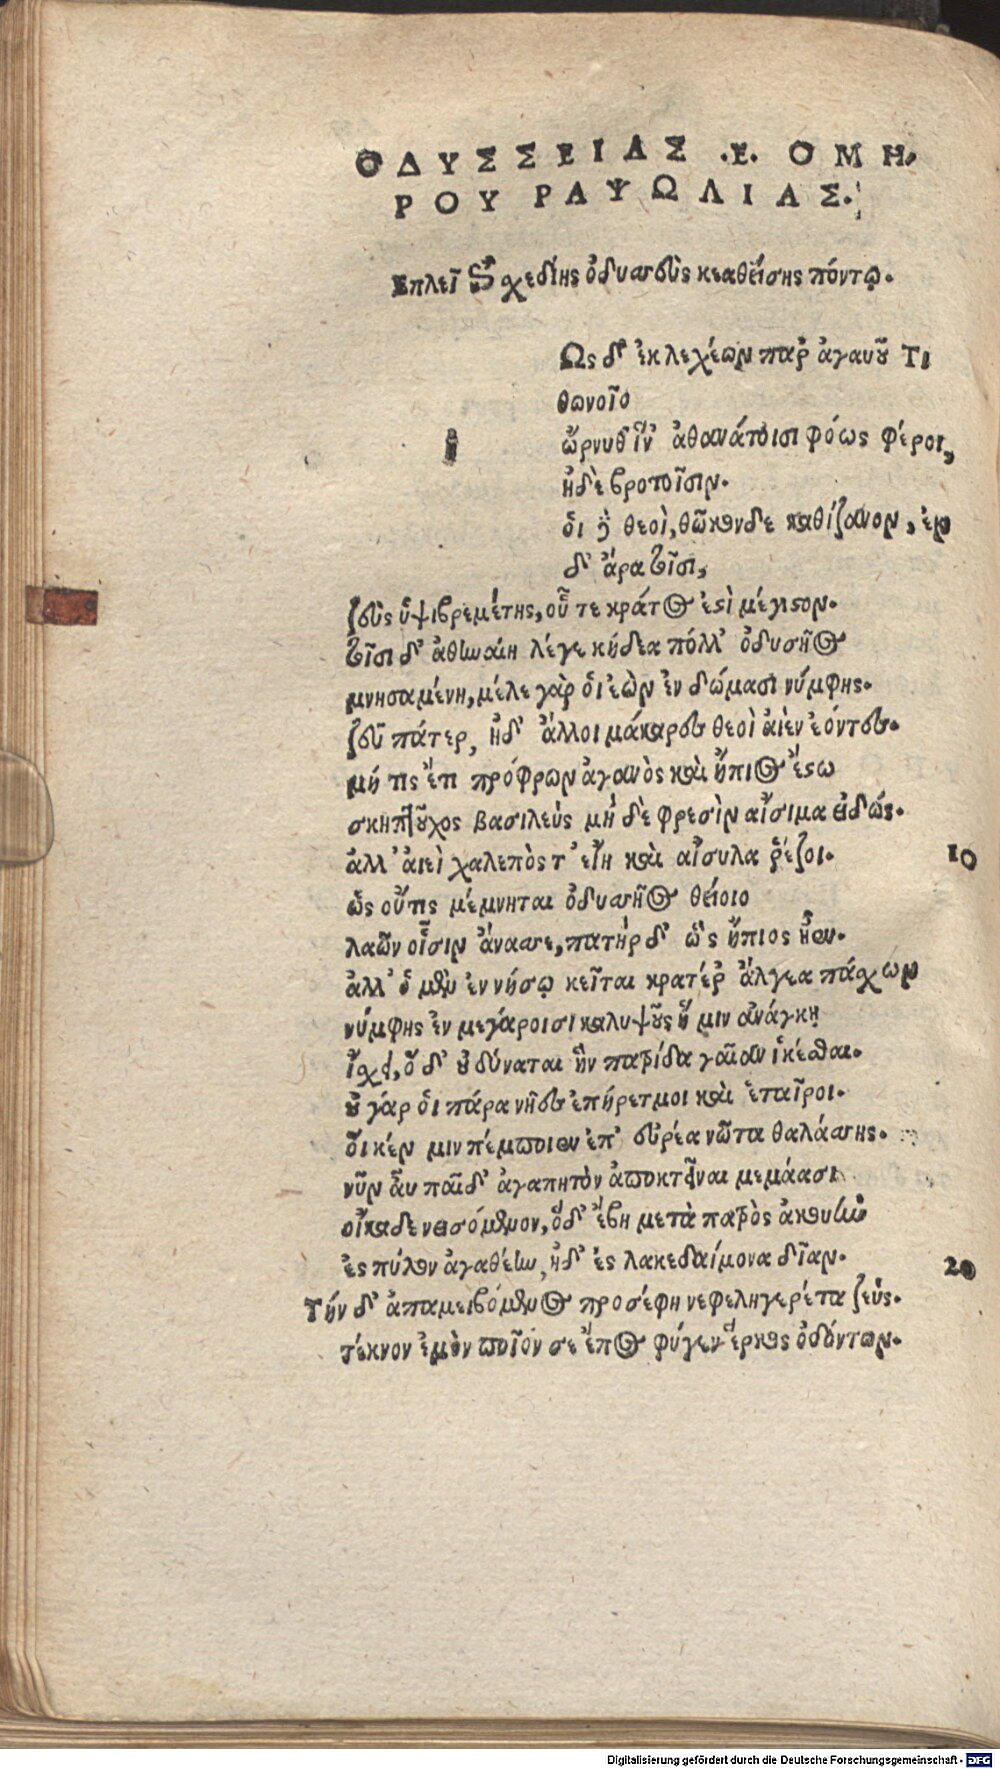 ΟΔΥΣΣΕΙΑΣ .Ε. ΟΜΗ,
ΡΟΥ ΡΑΨΩΔΙΑΣ.
Επλεῖ σχεδίης ὀδυσσεὺς κεαθείσης πόντῳ.
Ως δ' ἐκ λεχέων παρ' ἀγαυοῦ Τι
θωνοῖο
ὤρνυθ' ἵν' ἀθανάτοισι φόως φέροι,
ἠδὲ βροτοῖσιν.
ὁι δὲ θεοὶ, θῶκονδε καθίζανον, ἐν
δ' ἄρα τοῖσι,
ζεὺς ὑψιβρεμέτης, οὗ τε κράτος ἐστὶ μέγιστον.
τοῖσι δ' ἀθηναίη λέγε κήδεα πόλλ' ὀδυσῆος
μνησαμένη, μέλε γὰρ ὁι ἐὼν ἐν δώμασι νύμφης.
ζεῦ πάτερ, ἠδ' ἄλλοι μάκαρες θεοὶ ἀιὲν ἐόντες.
μή τις ἔτι πρόφρων ἀγανὸς καὶ ἤπιος ἔστω
σκηπτοῦχος βασιλεὺς μηδὲ φρεσὶν αἴσιμα εἰδώς.
ἀλλ' ἀιεὶ χαλεπὸς τ' εἴη καὶ αἴσυλα ῥέζοι.
10
ὡς οὔτις μέμνηται ὀδυσσῆος θείοιο
λαῶν οἷσιν ἄνασσε, πατὴρ δ' ὣς ἤπιος ἦεν.
ἀλλ' ὁ μὲν ἐν νήσῳ κεῖται κρατέρ' ἄλγεα πάσχων
νύμφης ἐν μεγάροισι καλυψοῦς ἥ μιν ἀνάγκῃ
ἴσχει, ὅ δ' οὐ δύναται ἣν πατρίδα γαῖαν ἱκέσθαι.
οὐ γάρ ὁι πάρα νῆες ἐπήρετμοι καὶ ἑταῖροι.
ὅι κέν μιν πέμποιεν ἐπ' εὐρέα νῶτα θαλάσσης.
νῦν ἂυ παῖδ' ἀγαπητὸν ἀποκτεῖναι μεμάασι
οἴκαδε νεισόμενον, ὅδ' ἔβη μετὰ πατρὸς ἀκουὴν
ἐς πύλον ἀγαθέην, ἠδ' ἐς λακεδαίμονα δῖαν.
20
Τὴν δ' ἀπαμειβόμενος προσέφη νεφεληγερέτα ζεύς.
τέκνον ἐμὸν ποῖόν σε ἔπος φύγεν ἕρκος ὀδόντων.
Digitalisierung gefördert durch die Deutsche Forschungsgemeinschaft - DFG